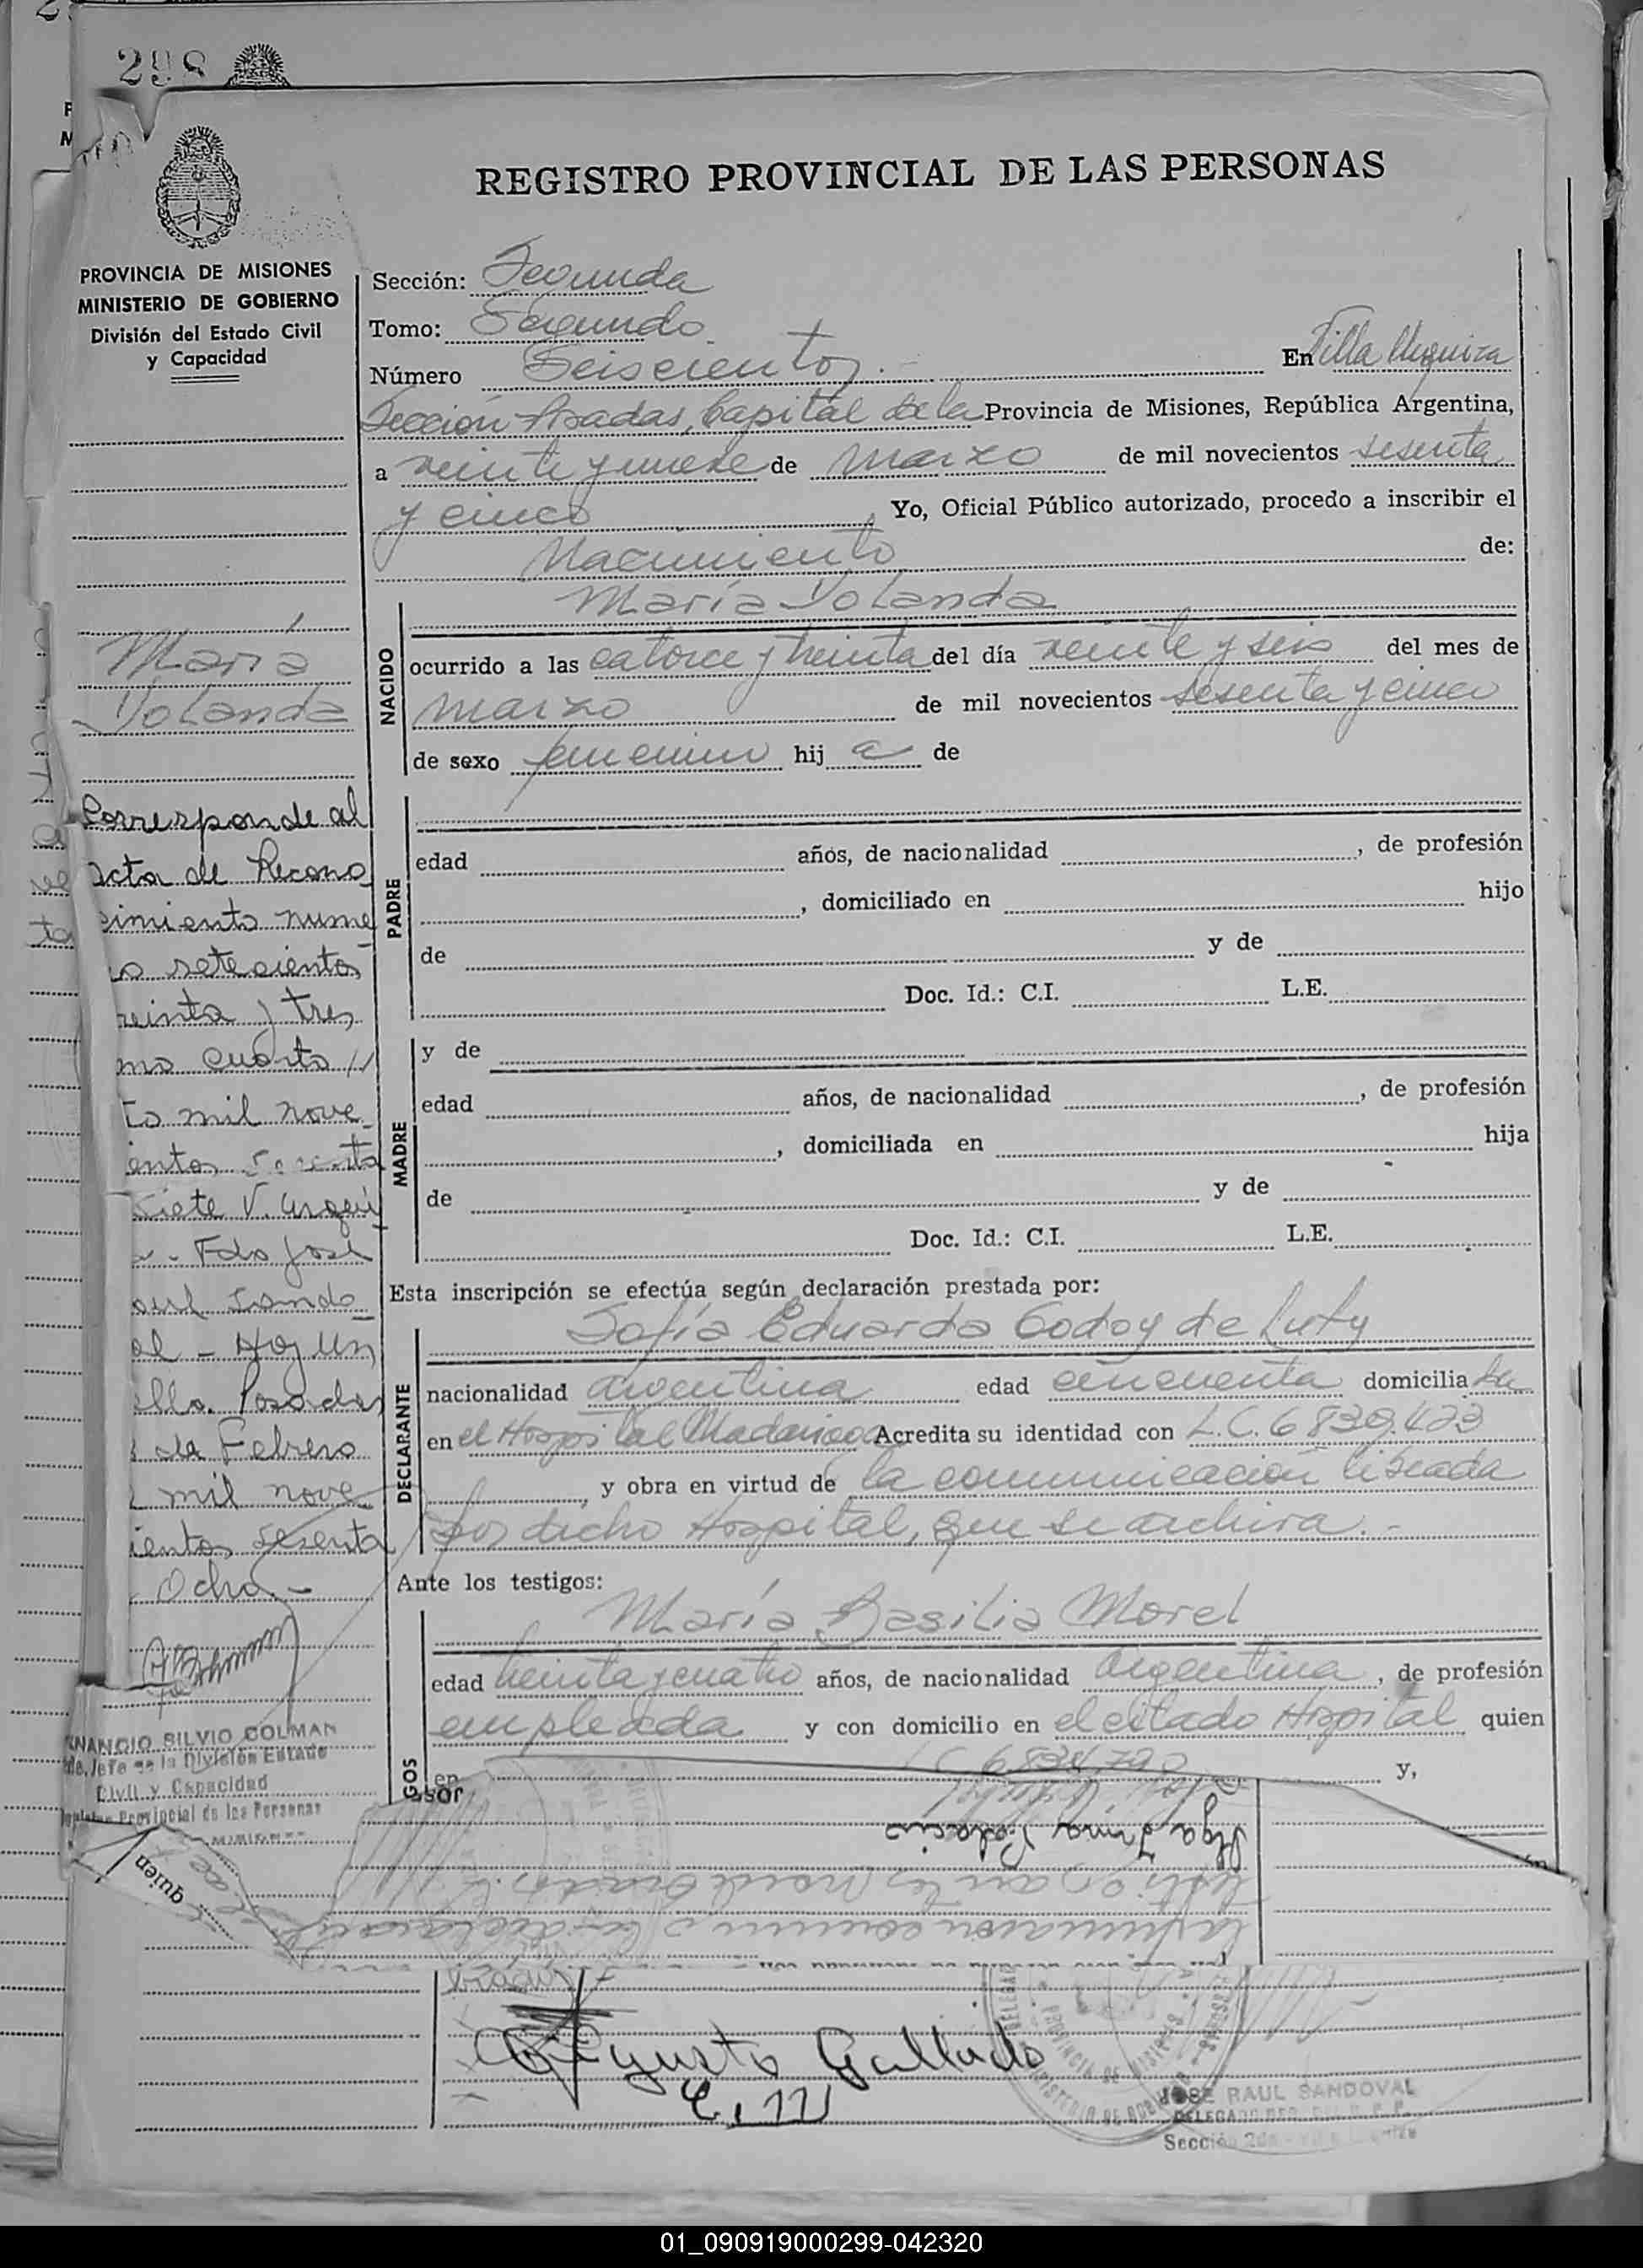 298
REGISTRO PROVINCIAL DE LAS PERSONAS
PROVINCIA DE MISIONES
MINISTERIO DE GOBIERNO
División del Estado Civil
y Capacidad
Sección: Segunda
Tomo: Segundo
Número Seiscientos.- En Villa Urquiza
Sección Posadas, Capital de la Provincia de Misiones, República Argentina,
a veinte y nueve de marzo de mil novecientos sesenta
y cinco Yo, Oficial Público autorizado, procedo a inscribir el
Nacimiento de:
María Yolanda
NACIDO
ocurrido a las catorce y treinta del día veinte y seis del mes de
marzo de mil novecientos sesenta y cinco
de sexo femenino hij a de
PADRE
edad años, de nacionalidad , de profesión
, domiciliado en hijo
de y de
Doc. Id.: C.I. L.E.
MADRE
y de
edad años, de nacionalidad , de profesión
, domiciliada en hija
de y de
Doc. Id.: C.I. L.E.
Esta inscripción se efectúa según declaración prestada por:
Sofía Eduarda Godoy de Luty
DECLARANTE
nacionalidad argentina edad cincuenta domicilia da
en el Hospital Madariaga Acredita su identidad con L.C. 6839.423
, y obra en virtud de la comunicación librada
por dicho Hospital, que se archiva.-
Ante los testigos:
María Basilia Morel
edad treinta y cuatro años, de nacionalidad argentina, de profesión
empleada y con domicilio en el citado Hospital quien
GOS
en y,
María
Yolanda
Corresponde al
Acta de Recono
cimiento nume
ro setecientos
treinta y tres
mo cuarto //
to mil nove
entos
siete V. Urqui
- Fdo José
aul Sando
al - Hay un
ello. Posadas
de Febrero
mil nove
ientos sesenta
Ocho.-
NANCIO SILVIO COLMAN
Jefe de la División Estado
Civil y Capacidad
Provincial de las Personas
MISIONES
quien
Olga Irma Palacio
Augusto Gallardo
JOSE RAUL SANDOVAL
DELEGADO
Sección 2da
01_090919000299-042320